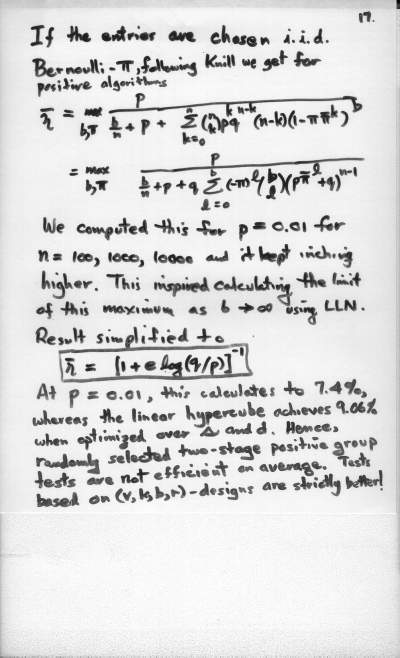 17.
If the entries are chosen i.i.d.
Bernoulli-π, following Knill we get for
positive algorithms
η̄ = max_{b,π} p / ( b/n + p + Σ_{k=0}^{n} (n k) p^k q^{n-k} (n-k)(1-π π̄^k)^b )
= max_{b,π} p / ( b/n + p + q Σ_{l=0}^{b} (-π)^l (b l)(p π̄^l + q)^{n-1} )
We computed this for p = 0.01 for
n = 100, 1000, 10000 and it kept inching
higher. This inspired calculating the limit
of this maximum as b → ∞ using LLN.
Result simplified to
η̄ = [1 + e log(q/p)]^{-1}
At p = 0.01, this calculates to 7.4%,
whereas the linear hypercube achieves 9.06%
when optimized over Δ and d. Hence,
randomly selected two-stage positive group
tests are not efficient on average. Tests
based on (v, k, b, r)-designs are strictly better!